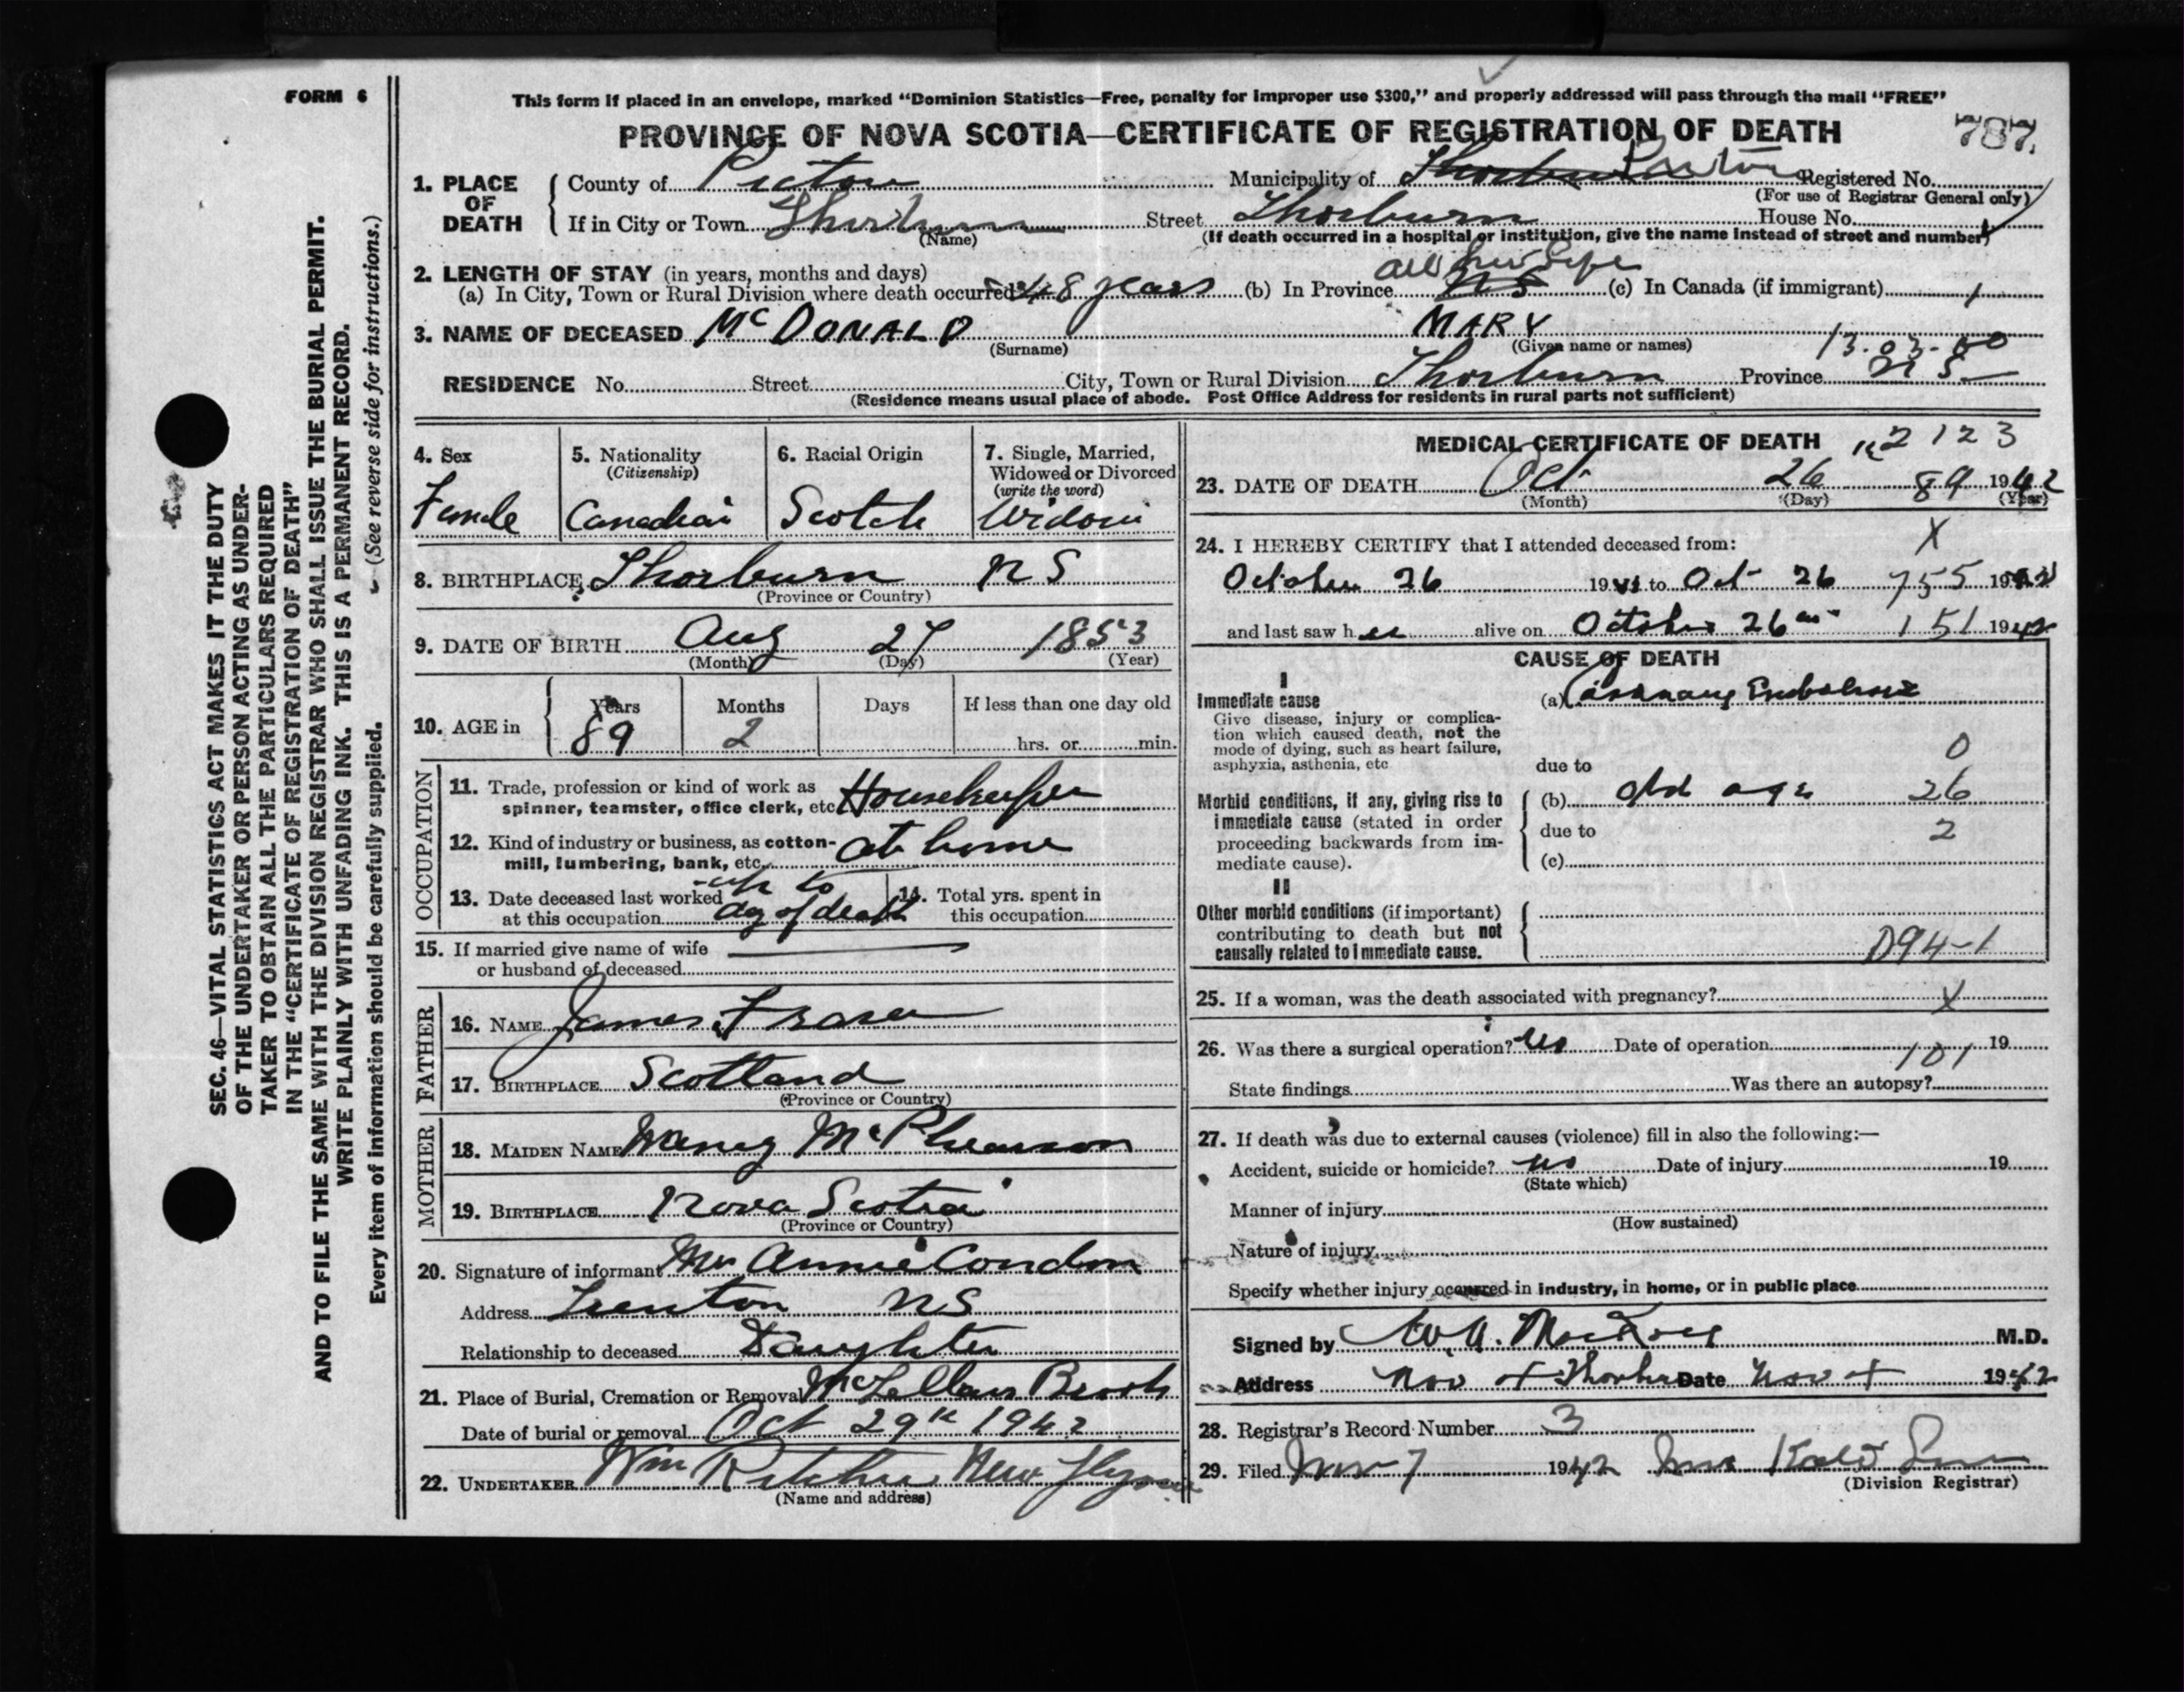 FORM 6
This form if placed in an envelope, marked "Dominion Statistics—Free, penalty for improper use $300," and properly addressed will pass through the mail "FREE"
PROVINCE OF NOVA SCOTIA—CERTIFICATE OF REGISTRATION OF DEATH 787.
1. PLACE OF DEATH
County of Pictou Municipality of Thorburn Pictou Registered No.
(For use of Registrar General only)
If in City or Town Thorburn Street Thorburn House No.
(Name) (If death occurred in a hospital or institution, give the name instead of street and number)
2. LENGTH OF STAY (in years, months and days)
all her life
(a) In City, Town or Rural Division where death occurred 48 years (b) In Province NS (c) In Canada (if immigrant)
3. NAME OF DECEASED McDONALD MARY
(Surname) (Given name or names) 13.03-00
RESIDENCE No. Street City, Town or Rural Division Thorburn Province NS
(Residence means usual place of abode. Post Office Address for residents in rural parts not sufficient)
4. Sex Female
5. Nationality (Citizenship) Canadian
6. Racial Origin Scotch
7. Single, Married, Widowed or Divorced (write the word) Widow
8. BIRTHPLACE Thorburn NS
(Province or Country)
9. DATE OF BIRTH Aug 27 1853
(Month) (Day) (Year)
10. AGE in Years 89 Months 2 Days If less than one day old hrs. or min.
OCCUPATION
11. Trade, profession or kind of work as spinner, teamster, office clerk, etc. Housekeeper
12. Kind of industry or business, as cotton-mill, lumbering, bank, etc. at home
13. Date deceased last worked at this occupation up to day of death
14. Total yrs. spent in this occupation
15. If married give name of wife or husband of deceased
FATHER
16. NAME James Fraser
17. BIRTHPLACE Scotland
(Province or Country)
MOTHER
18. MAIDEN NAME Nancy McPhearson
19. BIRTHPLACE Nova Scotia
(Province or Country)
20. Signature of informant Mrs Annie Condon
Address Trenton NS
Relationship to deceased Daughter
21. Place of Burial, Cremation or Removal McLellans Brook
Date of burial or removal Oct 29th 1942
22. UNDERTAKER Wm Ritchie New Glasgow
(Name and address)
MEDICAL CERTIFICATE OF DEATH 2123
23. DATE OF DEATH Oct 26 89 1942
(Month) (Day) (Year)
24. I HEREBY CERTIFY that I attended deceased from: X
October 26 19 to Oct 26 755 1942
and last saw her alive on October 26 151 1942
CAUSE OF DEATH
I
Immediate cause
Give disease, injury or complication which caused death, not the mode of dying, such as heart failure, asphyxia, asthenia, etc
(a) Coronary Embolism
0
due to
Morbid conditions, if any, giving rise to immediate cause (stated in order proceeding backwards from immediate cause).
(b) Old age 26
due to 2
(c)
II
Other morbid conditions (if important) contributing to death but not causally related to immediate cause.
D94-1
25. If a woman, was the death associated with pregnancy? X
26. Was there a surgical operation? No Date of operation 101 19
State findings Was there an autopsy?
27. If death was due to external causes (violence) fill in also the following:—
Accident, suicide or homicide? no Date of injury 19
(State which)
Manner of injury
(How sustained)
Nature of injury
Specify whether injury occurred in industry, in home, or in public place
Signed by M.D.
Address Date Nov 1942
28. Registrar's Record Number 3
29. Filed Nov 7 1942
(Division Registrar)
SEC. 46—VITAL STATISTICS ACT MAKES IT THE DUTY
OF THE UNDERTAKER OR PERSON ACTING AS UNDER-
TAKER TO OBTAIN ALL THE PARTICULARS REQUIRED
IN THE "CERTIFICATE OF REGISTRATION OF DEATH"
AND TO FILE THE SAME WITH THE DIVISION REGISTRAR WHO SHALL ISSUE THE BURIAL PERMIT.
WRITE PLAINLY WITH UNFADING INK. THIS IS A PERMANENT RECORD.
Every item of information should be carefully supplied. (See reverse side for instructions.)